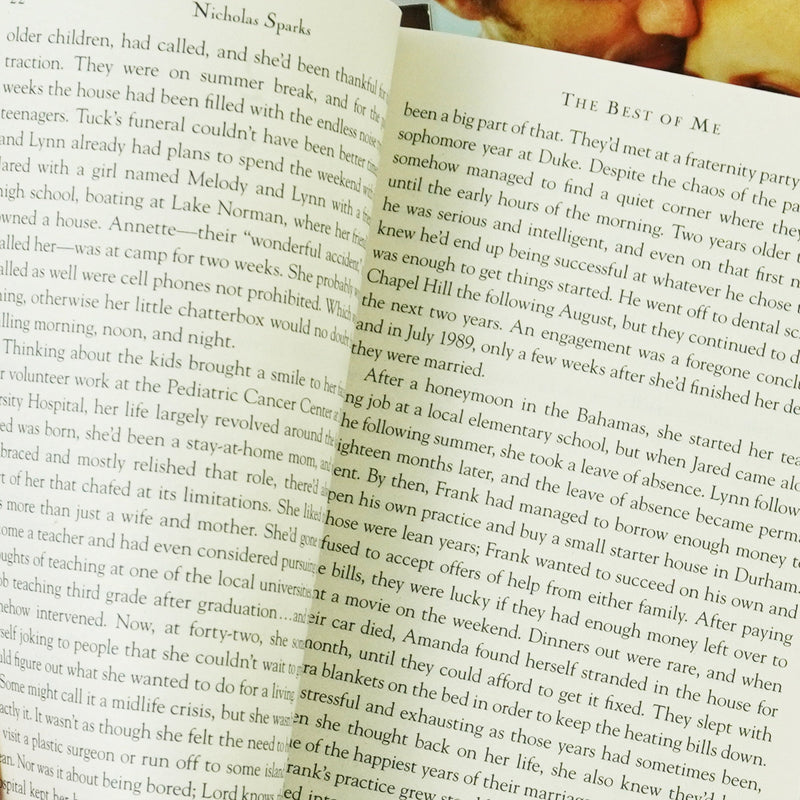 22
Nicholas Sparks
older children, had called, and she'd been thankful for
traction. They were on summer break, and for the
weeks the house had been filled with the endless noise
teenagers. Tuck's funeral couldn't have been better
and Lynn already had plans to spend the weekend
Jared with a girl named Melody and Lynn with a
high school, boating at Lake Norman, where her
owned a house. Annette—their "wonderful accident,"
called her—was at camp for two weeks. She probably
called as well were cell phones not prohibited. Which
otherwise her little chatterbox would no doubt
calling morning, noon, and night.
Thinking about the kids brought a smile to her
volunteer work at the Pediatric Cancer Center
Hospital, her life largely revolved around the
was born, she'd been a stay-at-home mom, and
and mostly relished that role, there'd
of her that chafed at its limitations. She liked
more than just a wife and mother. She'd gone
a teacher and had even considered pursuing
of teaching at one of the local
teaching third grade after graduation...and
intervened. Now, at forty-two, she
joking to people that she couldn't wait to
figure out what she wanted to do for a living
Some might call it a midlife crisis, but she
it. It wasn't as though she felt the need to
visit a plastic surgeon or run off to some island
Nor was it about being bored; Lord knows
kept her
The Best of Me
been a big part of that. They'd met at a fraternity party
sophomore year at Duke. Despite the chaos of the
somehow managed to find a quiet corner where they
until the early hours of the morning. Two years older
he was serious and intelligent, and even on that first
knew he'd end up being successful at whatever he chose
was enough to get things started. He went off to dental
Chapel Hill the following August, but they continued to
the next two years. An engagement was a foregone
and in July 1989, only a few weeks after she'd finished her
they were married.
After a honeymoon in the Bahamas, she started her
job at a local elementary school, but when Jared came
he following summer, she took a leave of absence. Lynn
ighteen months later, and the leave of absence became
ent. By then, Frank had managed to borrow enough money
pen his own practice and buy a small starter house in Durham.
hose were lean years; Frank wanted to succeed on his own and
fused to accept offers of help from either family. After paying
e bills, they were lucky if they had enough money left over to
nt a movie on the weekend. Dinners out were rare, and when
eir car died, Amanda found herself stranded in the house for
month, until they could afford to get it fixed. They slept with
ra blankets on the bed in order to keep the heating bills down.
stressful and exhausting as those years had sometimes been,
en she thought back on her life, she also knew they'd
e of the happiest years of their
rank's practice grew